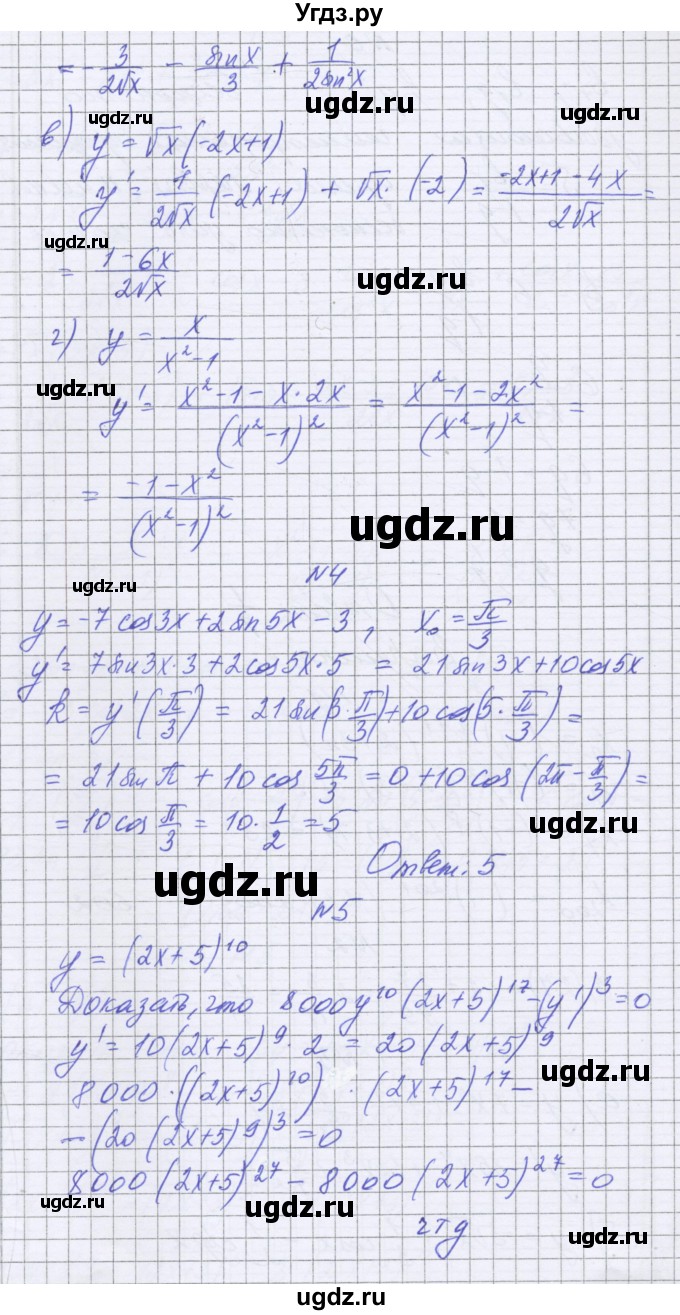 Угдз.ру
= - 3/(2√x) - sin x/3 + 1/(2sin²x)
ugdz.ru
ugdz.ru
в) y = √x (-2x+1)
ugdz.ru
y' = 1/(2√x) (-2x+1) + √x · (-2) = (-2x+1-4x)/(2√x) =
ugdz.ru
= (1-6x)/(2√x)
ugdz.ru
г) y = x/(x²-1)
ugdz.ru
y' = (x²-1-x·2x)/(x²-1)² = (x²-1-2x²)/(x²-1)² =
ugdz.ru
= (-1-x²)/(x²-1)²
ugdz.ru
N4
ugdz.ru
y = -7cos3x+2sin5x-3, x₀ = π/3
y' = 7sin3x·3+2cos5x·5 = 21sin3x+10cos5x
ugdz.ru
k = y'(π/3) = 21sin(3·π/3)+10cos(5·π/3) =
= 21sinπ + 10cos 5π/3 = 0+10cos(2π-π/3) =
= 10cos π/3 = 10·1/2 = 5
ugdz.ru
Ответ: 5
ugdz.ru
N5
y = (2x+5)¹⁰
Доказать, что 8000y¹⁰(2x+5)¹⁷-(y')³=0
y' = 10(2x+5)⁹·2 = 20(2x+5)⁹
ugdz.ru
8000·((2x+5)¹⁰)·(2x+5)¹⁷-
-(20(2x+5)⁹)³=0
8000(2x+5)²⁷-8000(2x+5)²⁷=0
ugdz.ru
ugdz.ru
чтд
ugdz.ru
ugdz.ru